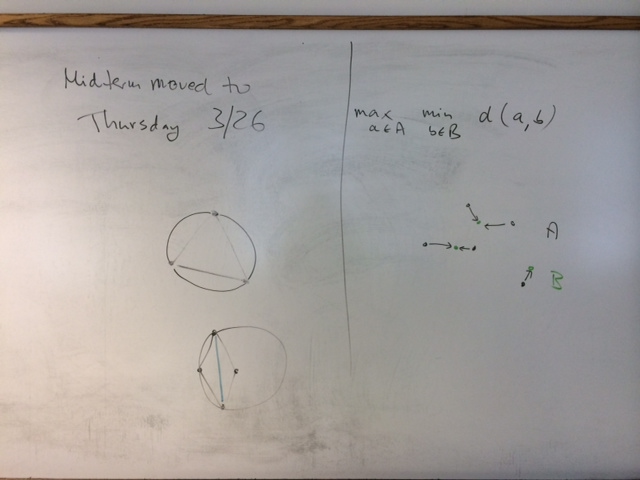 Midterm moved to
Thursday 3/26
max min d(a,b)
a∈A b∈B
A
B